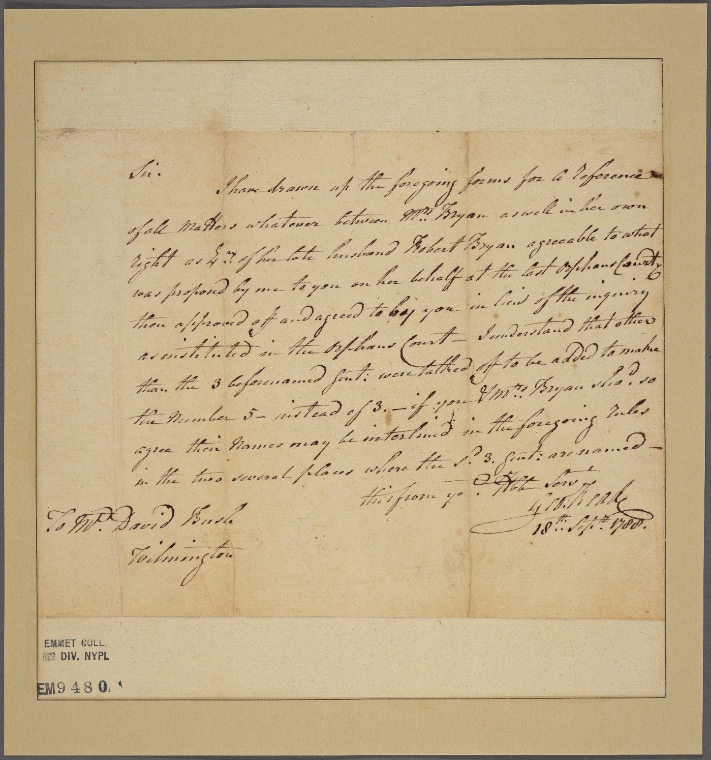 Sir.
I have drawn up the foregoing forms for a Reference
of all Matters whatever between Mrs. Bryan as well in her own
right as of her late husband Robert Bryan agreeable to what
was proposed by me to you on her behalf at the last Orphans Court,
then approved off and agreed to by you in lieu of the inquiry
as instituted in the Orphans Court — I understand that other
than the 3 beforenamed Gent: were talked off to be added to make
the Number 5 — instead of 3. — if you & Mrs. Bryan sho'd. so
agree their Names may be interlined in the foregoing Rules
in the two several places where the sd. 3. Gent: are named —
this from yo. Hble Servt
Geo. Read
18th. Sepr. 1788.
To Mr. David Bush
Wilmington
EMMET COLL.
DIV. NYPL
EM9480